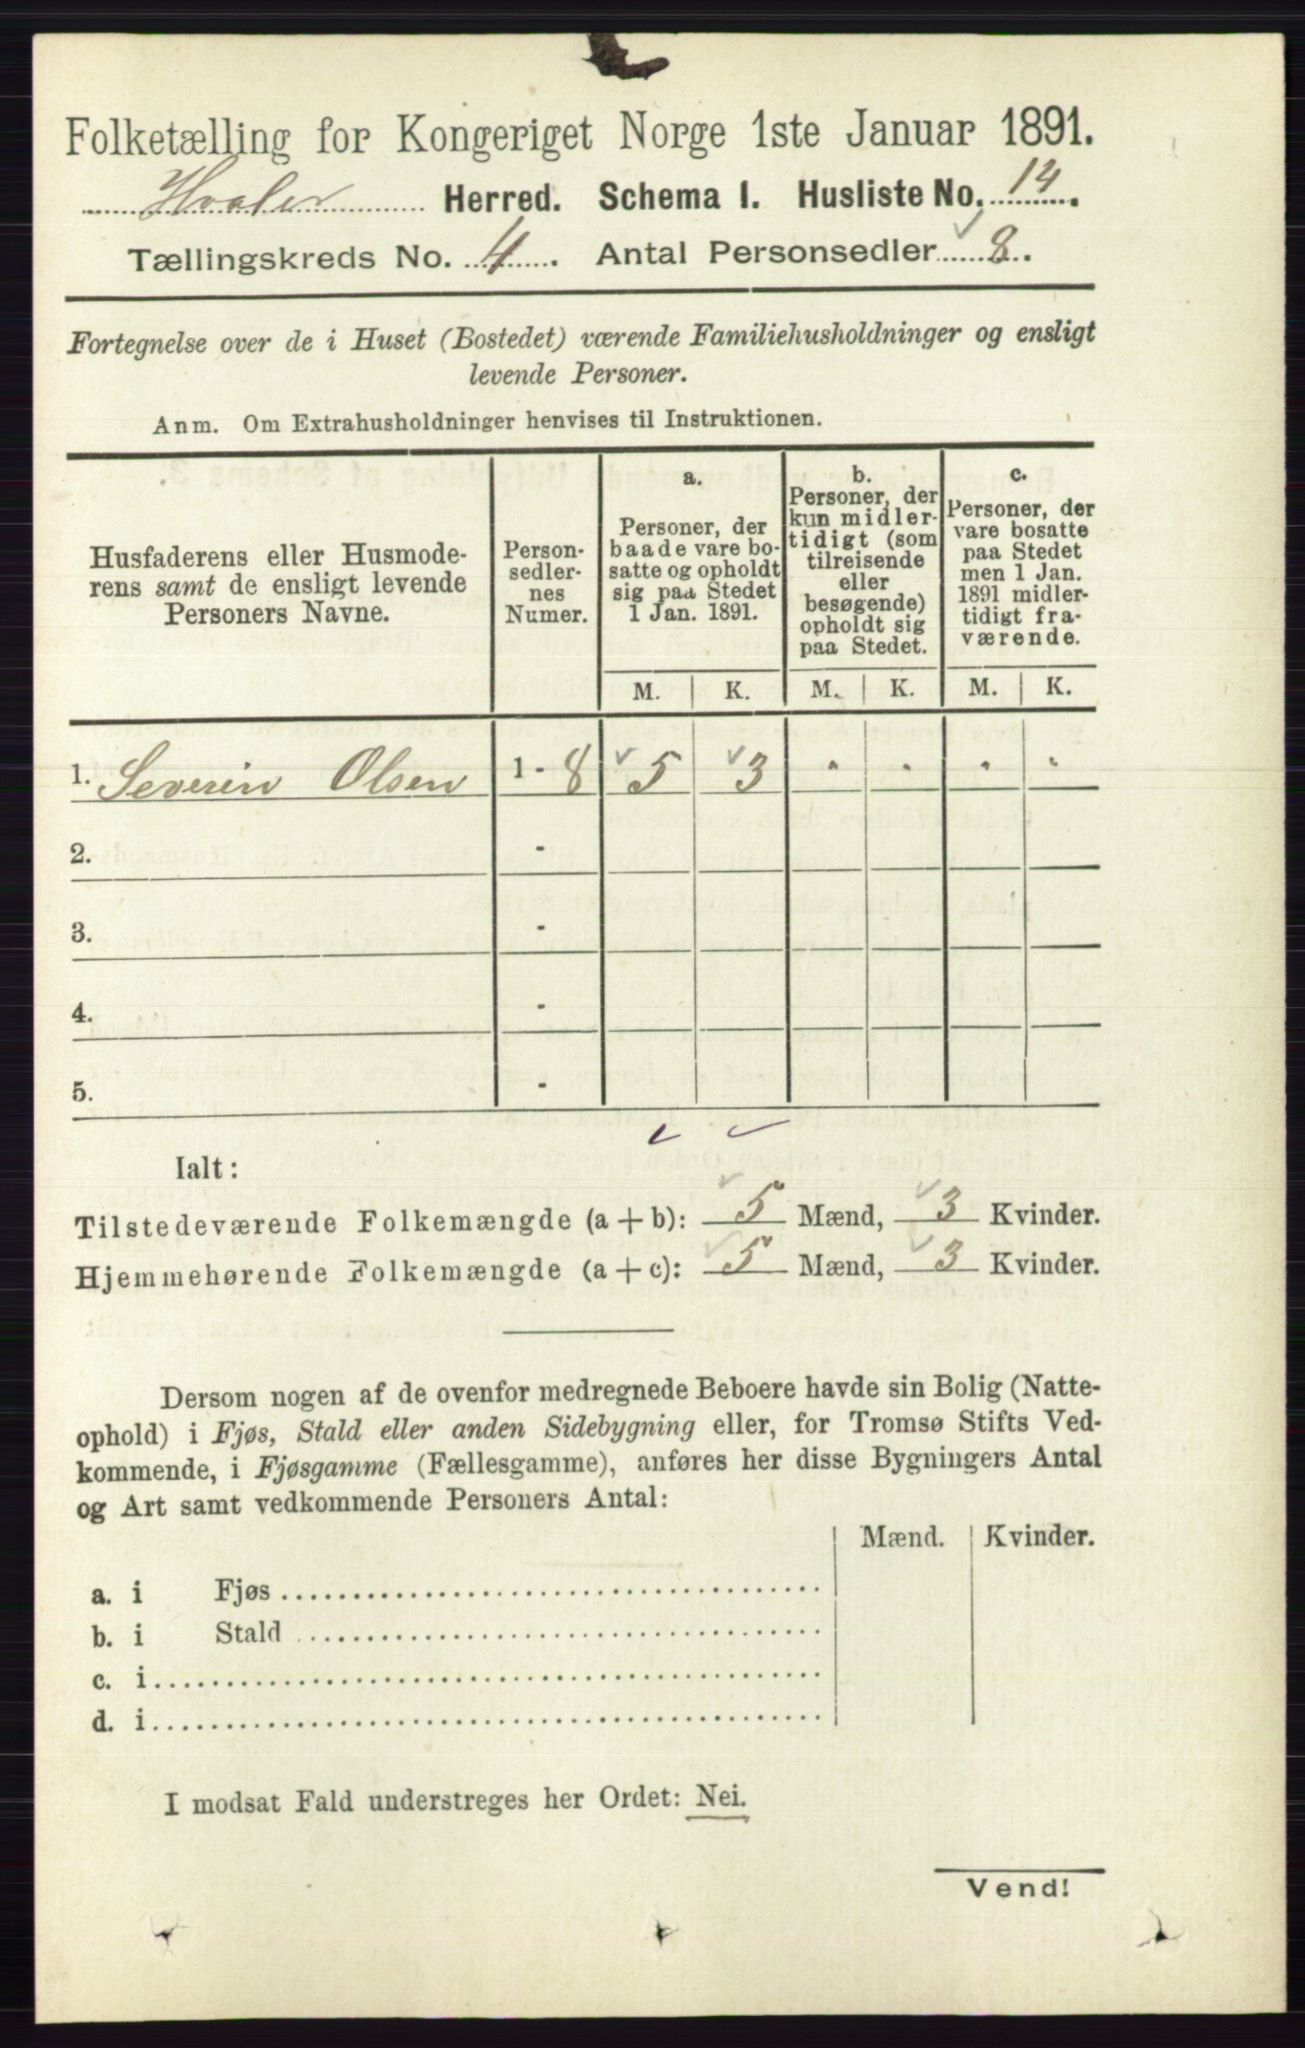 Folketælling for Kongeriget Norge 1ste Januar 1891.
Hvaler Herred. Schema I. Husliste No. 14.
Tællingskreds No. 4. Antal Personsedler 8.
Fortegnelse over de i Huset (Bostedet) værende Familiehusholdninger og ensligt
levende Personer.
Anm. Om Extrahusholdninger henvises til Instruktionen.
Husfaderens eller Husmode-
rens samt de ensligt levende
Personers Navne.
Person-
sedler-
nes
Numer.
a.
Personer, der
baade vare bo-
satte og opholdt
sig paa Stedet
1 Jan. 1891.
b.
Personer, der
kun midler-
tidigt (som
tilreisende
eller
besøgende)
opholdt sig
paa Stedet.
c.
Personer, der
vare bosatte
paa Stedet
men 1 Jan.
1891 midler-
tidigt fra-
værende.
M. K. M. K. M. K.
1. Severin Olsen 1 - 8 5 3 " " " "
2. -
3. -
4. -
5. -
Ialt:
Tilstedeværende Folkemængde (a + b): 5 Mænd, 3 Kvinder.
Hjemmehørende Folkemængde (a + c): 5 Mænd, 3 Kvinder.
Dersom nogen af de ovenfor medregnede Beboere havde sin Bolig (Natte-
ophold) i Fjøs, Stald eller anden Sidebygning eller, for Tromsø Stifts Ved-
kommende, i Fjøsgamme (Fællesgamme), anføres her disse Bygningers Antal
og Art samt vedkommende Personers Antal:
Mænd. Kvinder.
a. i Fjøs
b. i Stald
c. i
d. i
I modsat Fald understreges her Ordet: Nei.
Vend!